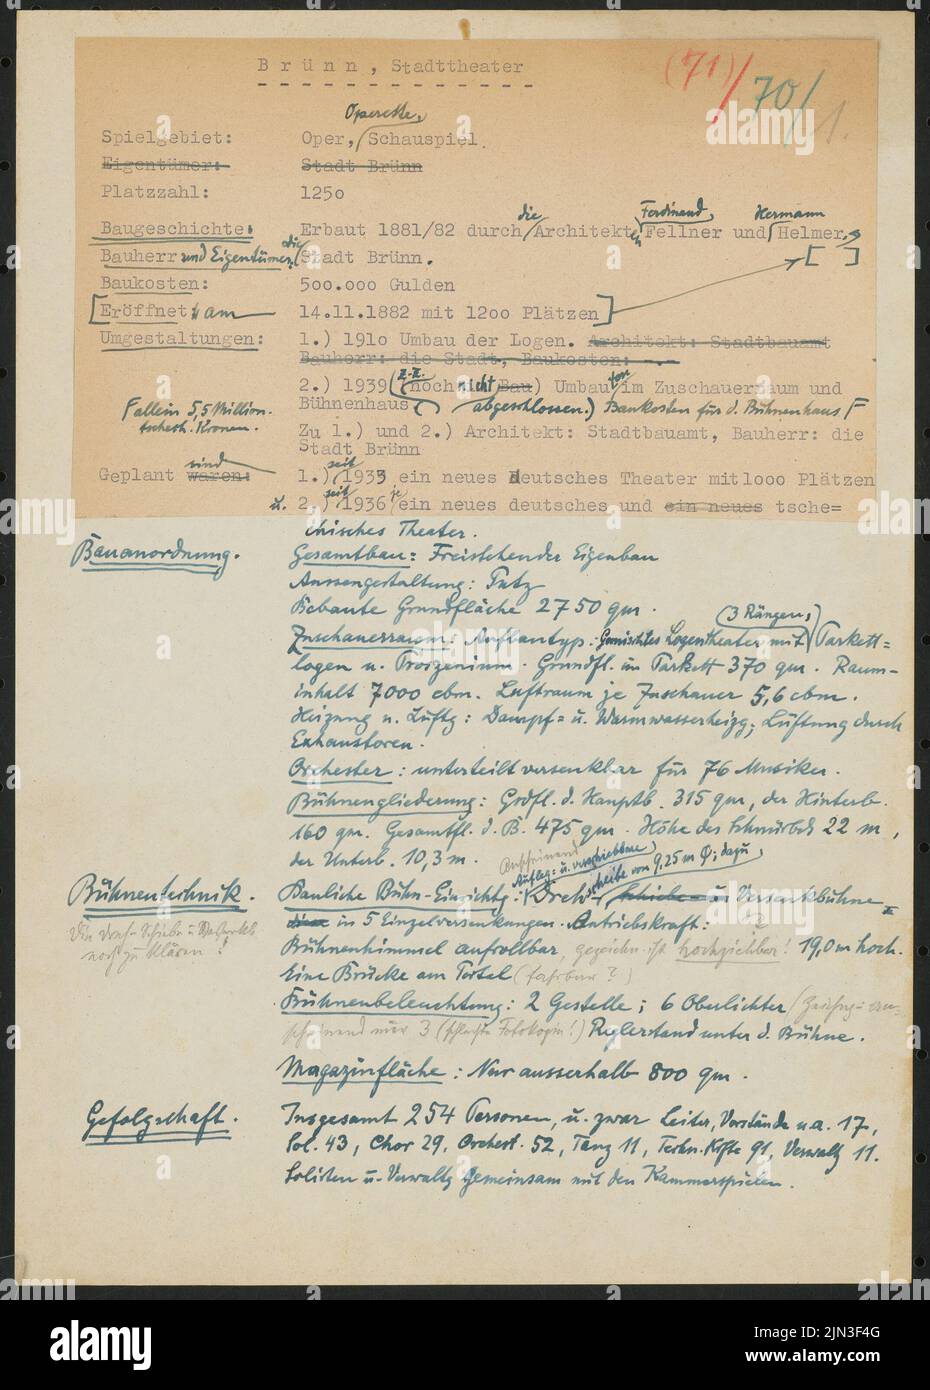 Brünn, Stadttheater
(71)/70/1.
Operette,
Spielgebiet: Oper, Schauspiel.
Eigentümer: Stadt Brünn
Platzzahl: 1250
die Ferdinand Hermann
Baugeschichte: Erbaut 1881/82 durch Architekten Fellner und Helmer,
Bauherr und Eigentümer: die Stadt Brünn. [ ]
Baukosten: 500.000 Gulden
[Eröffnet: am 14.11.1882 mit 1200 Plätzen]
Umgestaltungen: 1.) 1910 Umbau der Logen. Architekt: Stadtbauamt
Bauherr: die Stadt, Baukosten: - . -
2.) 1939 (noch nicht Bau) Umbau im Zuschauerraum und
Bühnenhaus abgeschlossen.) Baukosten für d. Bühnenhaus F
F allein 5,5 Million.
tschech. Kronen.
Zu 1.) und 2.) Architekt: Stadtbauamt, Bauherr: die
Stadt Brünn
sind seit
Geplant waren: 1.) 1933 ein neues Deutsches Theater mit 1000 Plätzen
seit je
u. 2.) 1936 ein neues deutsches und ein neues tsche=
chisches Theater.
Bauanordnung. Gesamtbau: Freistehender Eigenbau
Aussengestaltung: Putz
Bebaute Grundfläche 2750 qm.
(3 Rängen,)
Zuschauerraum: Aufbautyp: Gemischtes Logentheater mit Parkett=
logen u. Proszenium. Grundfl. im Parkett 370 qm. Raum-
inhalt 7000 cbm. Luftraum je Zuschauer 5,6 cbm.
Heizung u. Lüftg: Dampf= u. Warmwasserheizg; Lüftung durch
Exhaustoren.
Orchester: unterteilt versenkbar für 76 Musiker.
Bühnengliederung: Grdfl. d. Hauptb. 315 qm, der Hinterb.
160 qm. Gesamtfl. d. B. 475 qm. Höhe des Schnürbds 22 m,
der Unterb. 10,3 m.
Anscheinend
Aufleg= u. verschiebbare
scheibe von 9,25 m Ø; dazu
Bühnentechnik. Bauliche Bühn-Einrichtg: Dreh- Schiebe- u. Versenkbühne
in 5 Einzelversenkungen. Antriebskraft: ?
noch zu klären!
Bühnenhimmel aufrollbar, gezeichn. ist hochziehbar! 19,0 m hoch.
Eine Brücke am Portal (fahrbar?)
Bühnenbeleuchtung: 2 Gestelle; 6 Oberlichter (Zeichng: an-
scheinend nur 3 (schlechte Fotokopie!) Reglerstand unter d. Bühne.
Magazinfläche: Nur ausserhalb 800 qm.
Gefolgschaft. Insgesamt 254 Personen, u. zwar Leiter, Vorstände u.a. 17,
Sol. 43, Chor 29, Orchest. 52, Tanz 11, Techn. Kfte 91, Verwaltg 11.
Solisten u. Verwaltg gemeinsam mit den Kammerspielen.
alamy
Image ID: 2JN3F4G
www.alamy.com